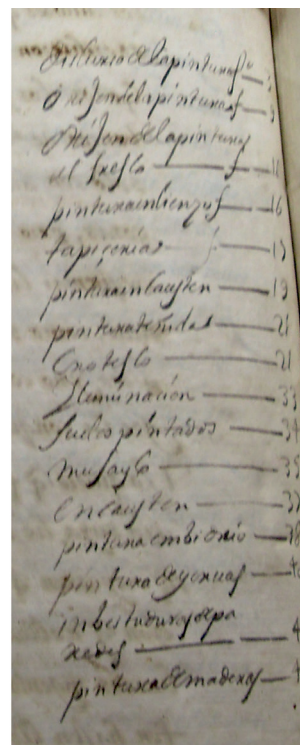 de la pintura fo
Origen de la pintura f
Origen de la pintura
al fresco — f — 11
pintura en lienzo f — 16
tapicerias — f — 15
pintura en causten — 19
pintura teñidas — 21
Grotesco — 21
Iluminacion — 33
suelos pintados — 34
musayco — 35
encausten — 37
pintura en bidrio — 38
pintura de yervas — 40
inbestiduras de pa
redes — 4
pintura de maderas —